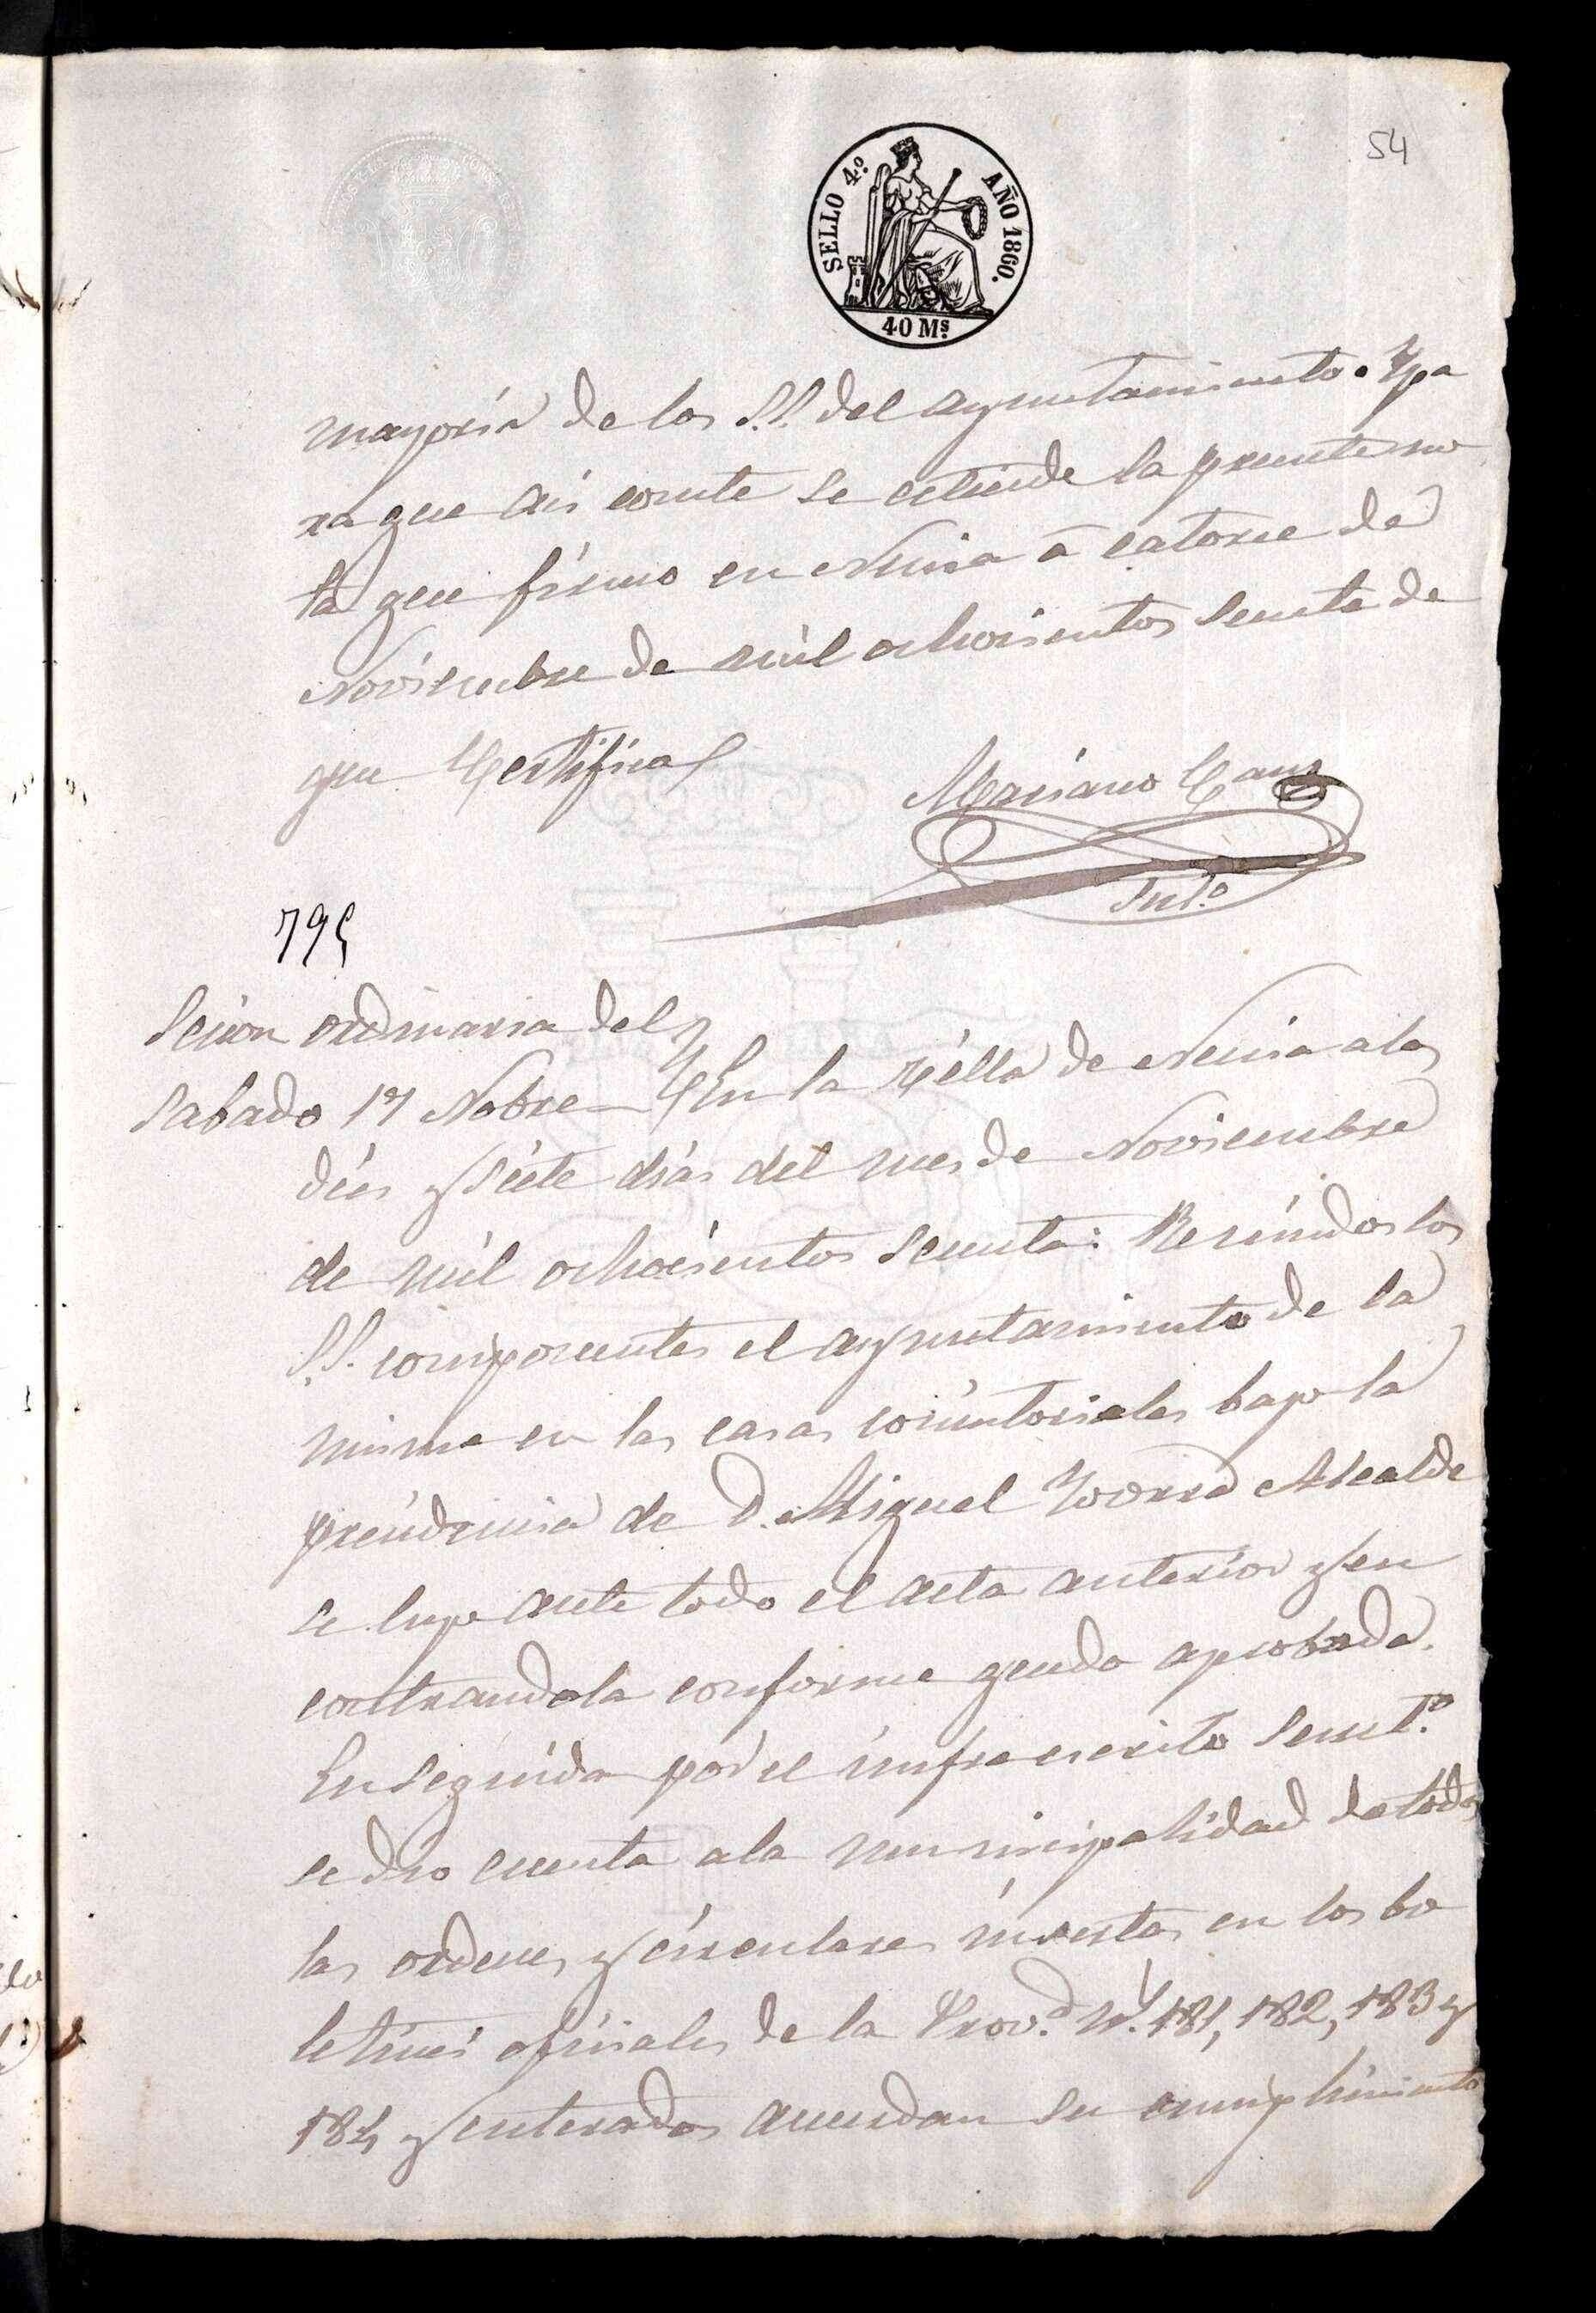 54
SELLO 4.º AÑO 1860.
40 Ms.
mayoría de los S.S. del ayuntamiento. Ypa
ra que asi conste se estiende la presente no
ta que firmo en Nucia á catorce de
Noviembre de mil ochocientos sesenta de
que Certifica
Mariano Cano
Srio
795
Sesion ordinaria del
Sabado 17 Nobre En la Villa de Nucia a los
dies y siete dias del mes de Noviembre
de mil ochocientos sesenta: Reunidos los
S.S. componentes el ayuntamiento de la
misma en las casas consistoriales bajo la
presidencia de D. Miguel Alcalde
se leyo ante todo el acta anterior y en
contrandola conforme quedo aprobada.
Enseguida por el infraescrito Secret.º
se dio cuenta a la municipalidad de todas
las ordenes y circulares insertas en los bo
letines oficiales de la Prov.ª N.s 181, 182, 183 y
184 y enterados acuerdan su cumplimiento